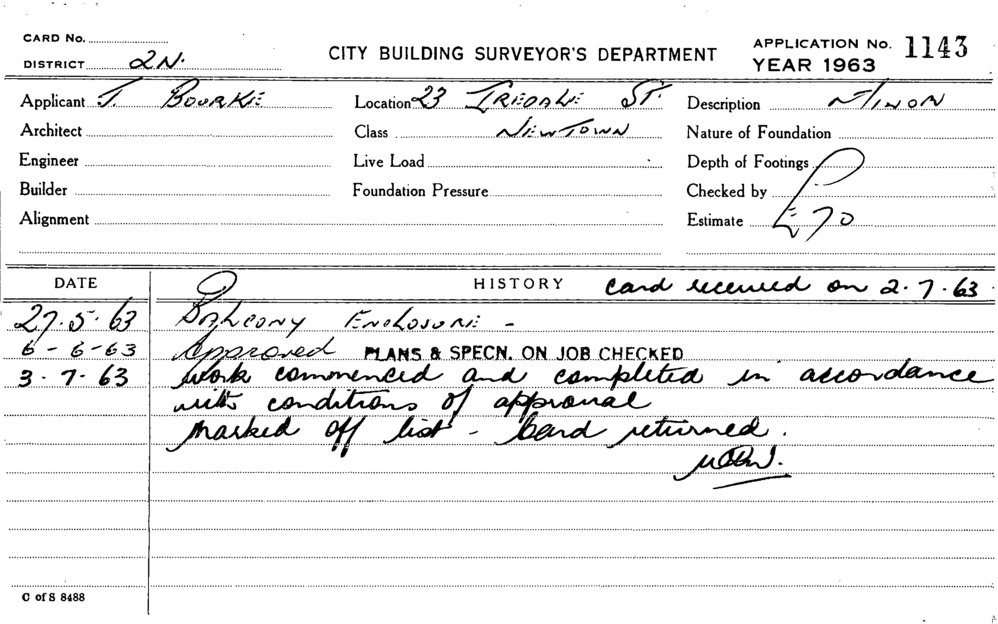 CARD No.
DISTRICT 2N.
CITY BUILDING SURVEYOR'S DEPARTMENT
APPLICATION No. 1143
YEAR 1963
Applicant J. BOURKE Location 23 IREDALE ST. Description MINOR
Architect Class NEWTOWN Nature of Foundation
Engineer Live Load Depth of Footings
Builder Foundation Pressure Checked by
Alignment Estimate £70
DATE HISTORY Card received on 2.7.63.
27.5.63 BALCONY ENCLOSURE -
6-6-63 Approved PLANS & SPECN. ON JOB CHECKED
3.7.63 Work commenced and completed in accordance
with conditions of approval
Marked off list - Card returned.
C of S 8488